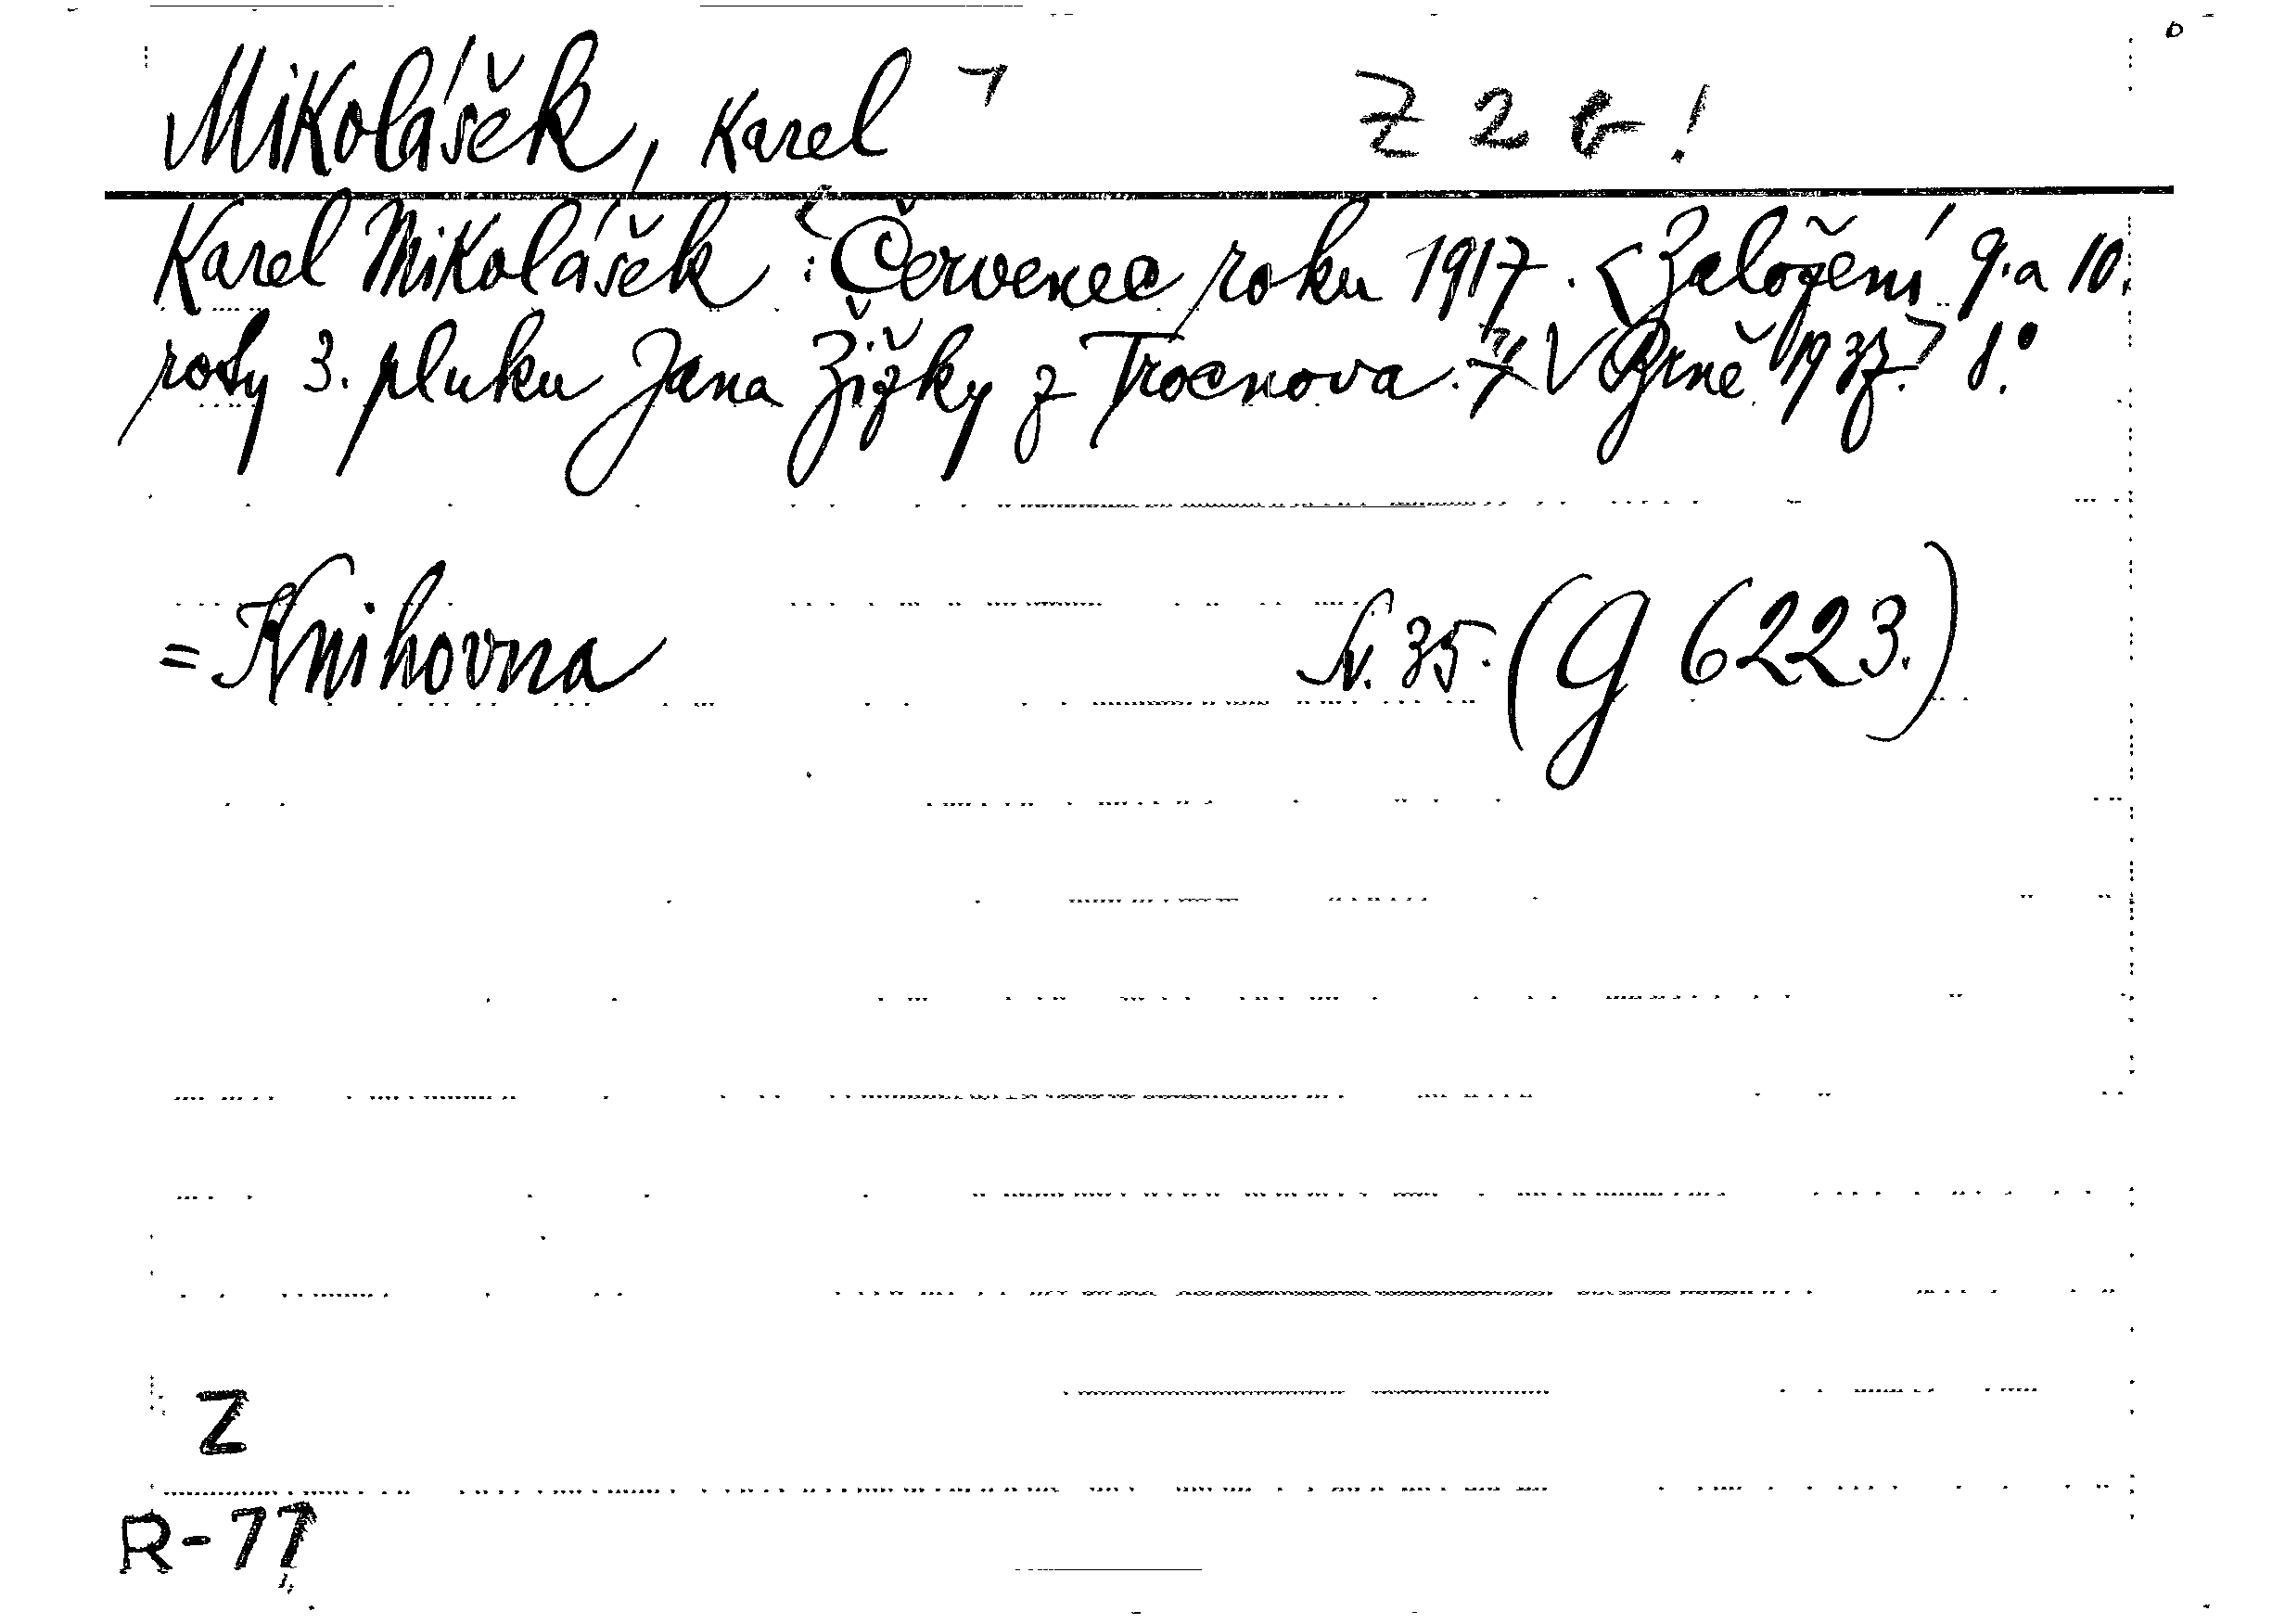 Mikolášek, Karel ¬ Z 2 6!
Karel Mikolášek : Červenec roku 1917. < Založení 9. a 10.
roty 3. pluku Jana Žižky z Trocnova. > V Brně 1937.> 8°
= Knihovna Sv. 35. (G 6223.)
Z
R-77